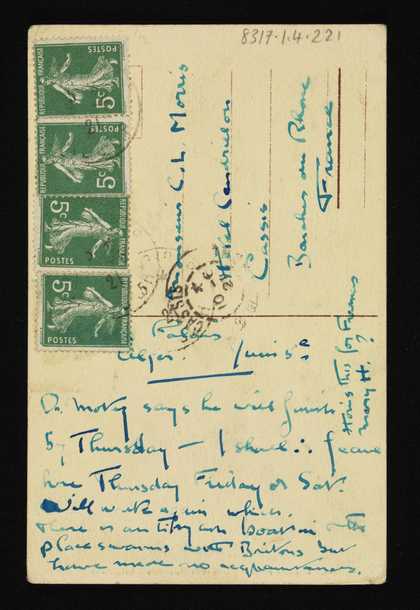 8317.1.4.221
REPUBLIQUE FRANÇAISE
POSTES
5c
REPUBLIQUE FRANÇAISE
POSTES
5c
REPUBLIQUE FRANÇAISE
POSTES
5c
POSTES
5c
Monsieur C. L. Morris
Hotel Cendrillon
Cassis
Bouches du Rhone
France
PARIS
Alger Tunis
Dr says he will finish
by Thursday — I shall ∴ leave
here Thursday Friday or Sat.
Will write again which.
There is an boat in
place swarms with Britons but
have made no acquaintances.
How's this for
Mary H. ?